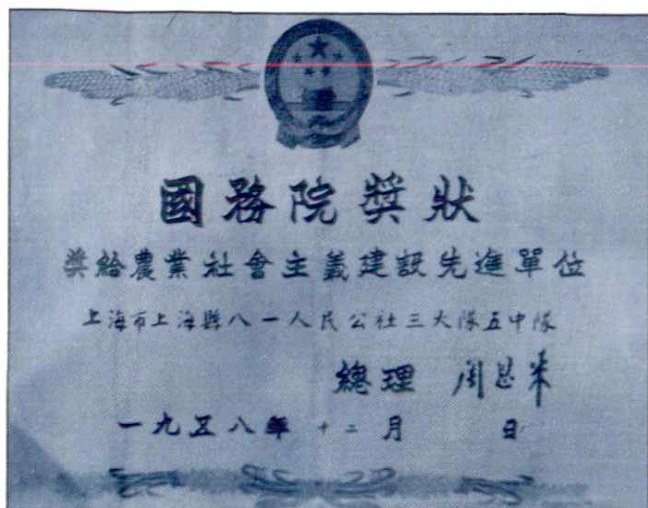 國務院獎狀
奖給農業社會主義建設先進單位
上海市上海縣八一人民公社三大隊五中隊
總理 周恩来
一九五八年 十二月 日